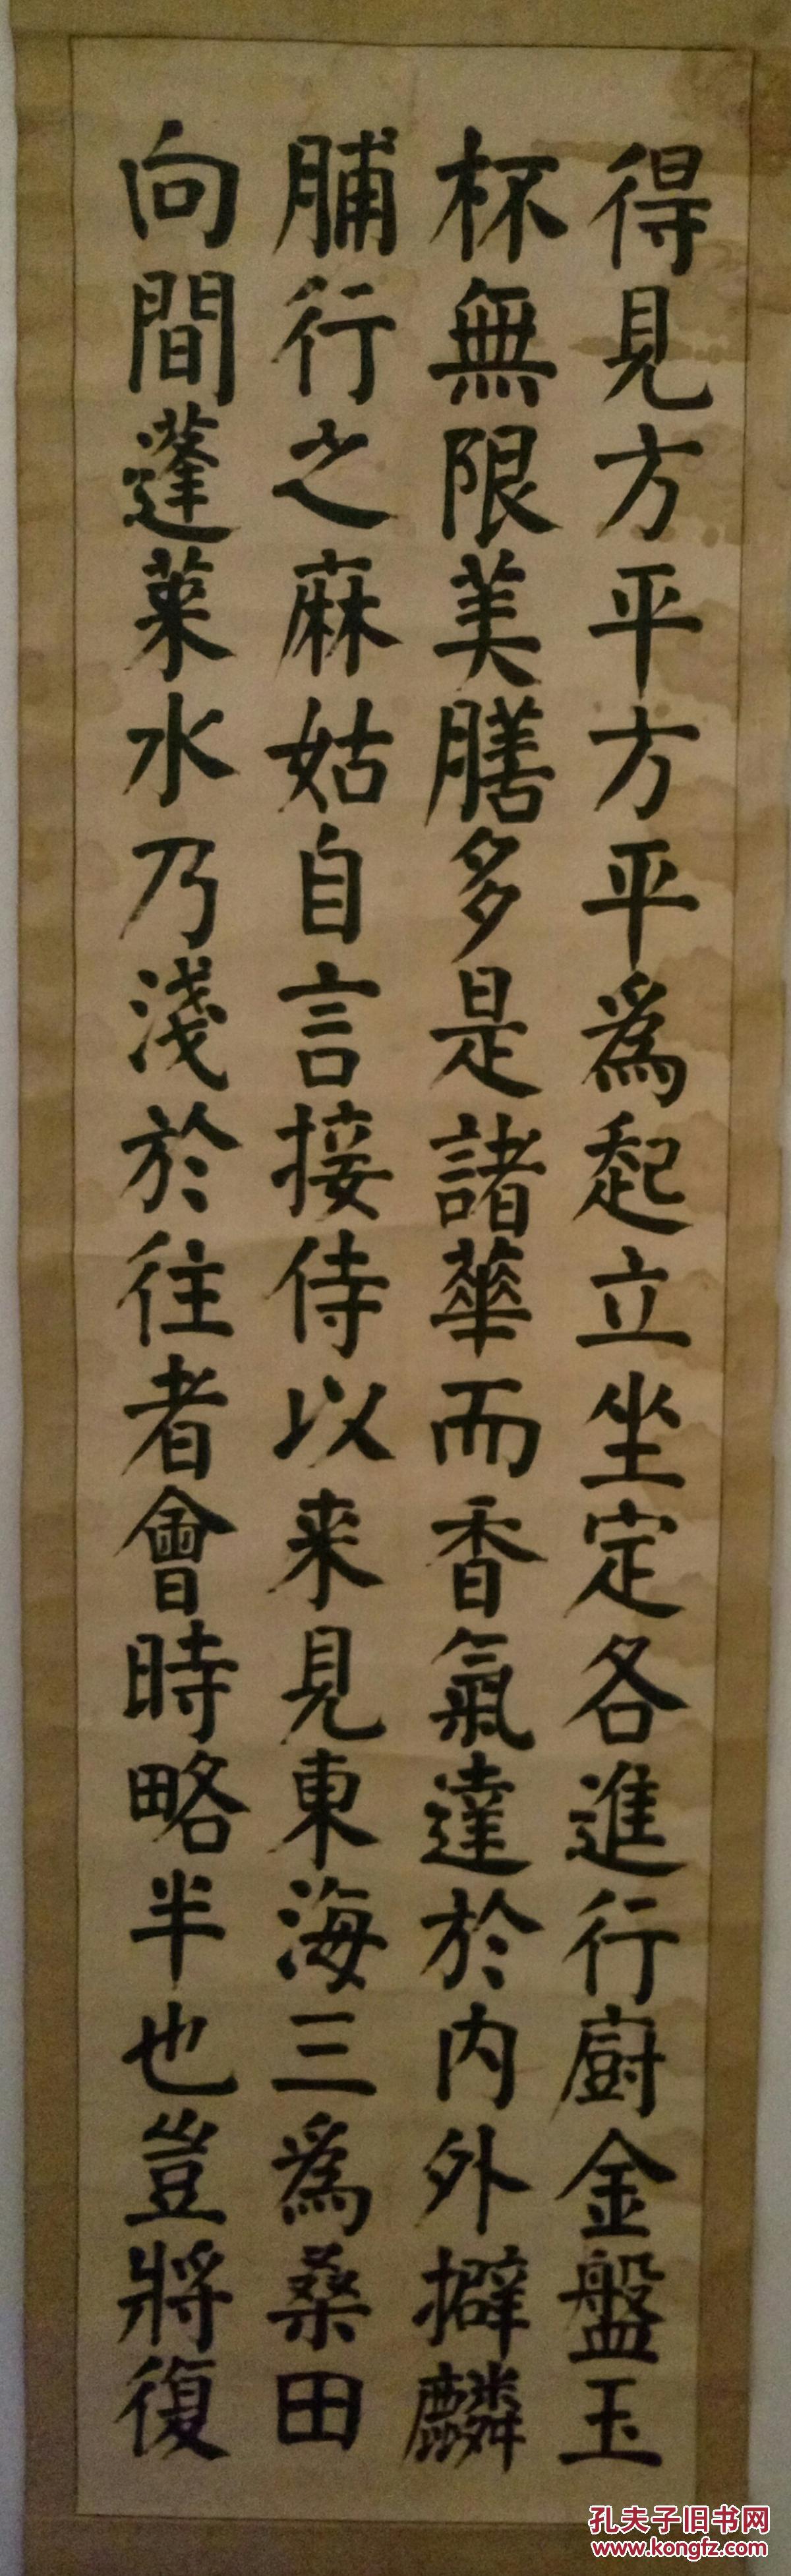 得見方平方平為起立坐定各進行廚金盤玉
杯無限美膳多是諸華而香氣達於内外擗麟
脯行之麻姑自言接侍以来見東海三為桑田
向間蓬萊水乃淺於往者會時略半也豈將復
孔夫子旧书网
www.kongfz.com